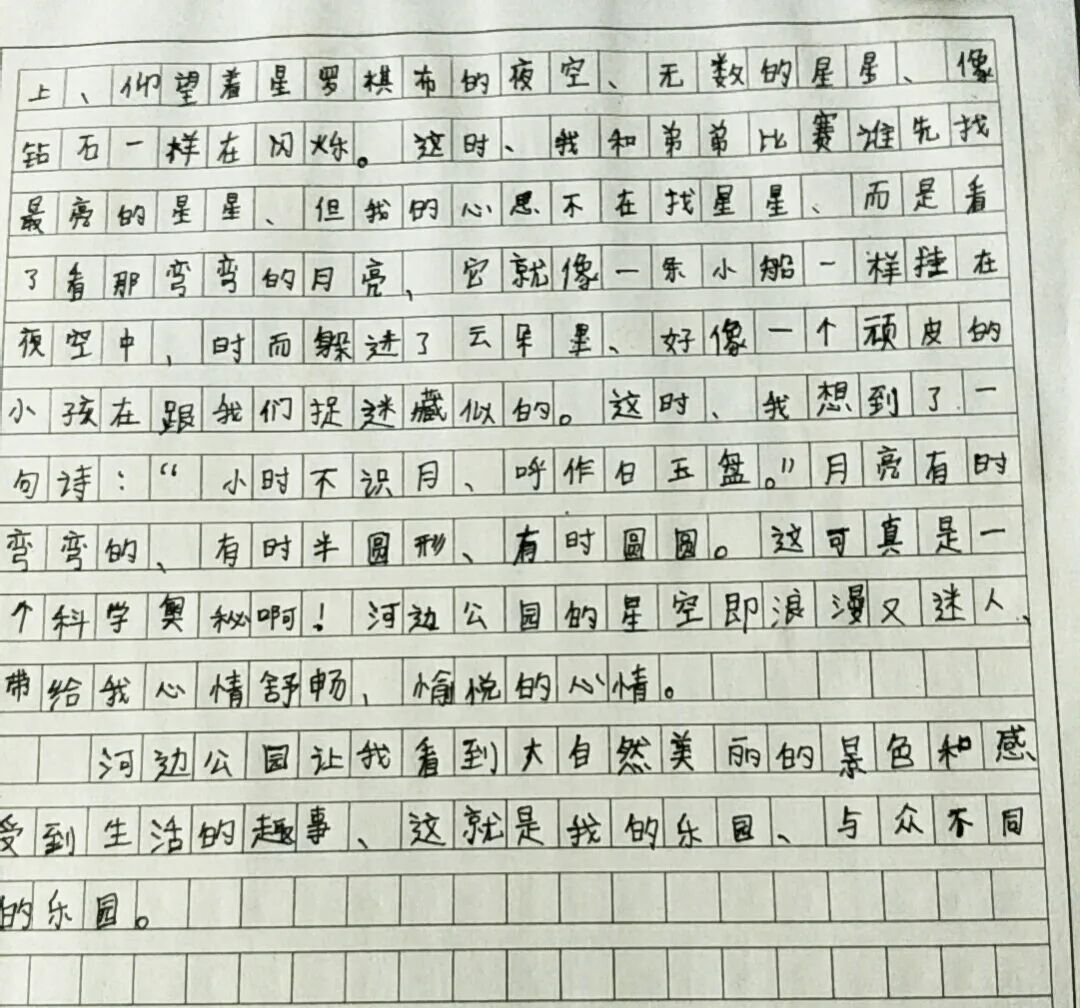 上、仰望着星罗棋布的夜空、无数的星星、像
钻石一样在闪烁。这时、我和弟弟比赛谁先找
最亮的星星、但我的心思不在找星星、而是看
了看那弯弯的月亮、它就像一乐小船一样挂在
夜空中、时而躲进了云朵里、好像一个顽皮的
小孩在跟我们捉迷藏似的。这时、我想到了一
句诗：“小时不识月、呼作白玉盘。”月亮有时
弯弯的、有时半圆形、有时圆圆。这可真是一
个科学奥秘啊！河边公园的星空即浪漫又迷人、
带给我心情舒畅、愉悦的心情。
河边公园让我看到大自然美丽的景色和感
受到生活的趣事、这就是我的乐园、与众不同
的乐园。